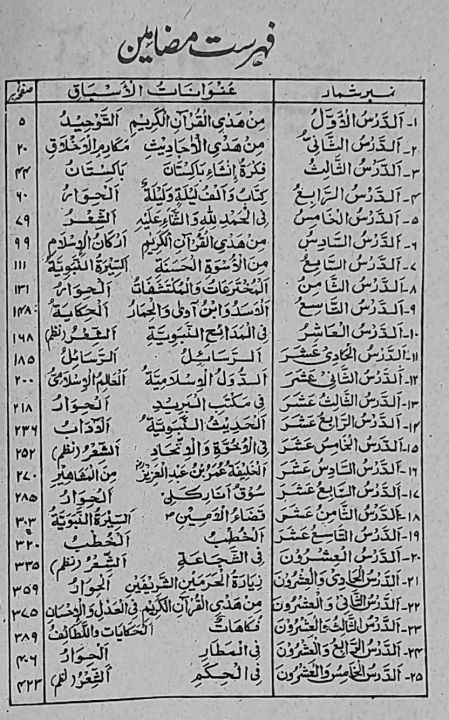 فہرست مضامین
نمبر شمار عُنوَانَاتُ الْأَسْبَاق صفحہ نمبر
۱- اَلدَّرْسُ الْأَوَّلُ مِنْ هَدْيِ الْقُرْآنِ الْكَرِيمِ اَلتَّوْحِيدُ ۵
۲- اَلدَّرْسُ الثَّانِيْ مِنْ هَدْيِ الْأَحَادِيثِ مَكَارِمِ الْأَخْلَاقِ ۲۰
۳- اَلدَّرْسُ الثَّالِثُ فِكْرَةُ إِنْشَاءِ بَاكِسْتَانَ بَاكِسْتَانُ ۴۴
۴- اَلدَّرْسُ الرَّابِعُ كِتَابُ وَأَلْفُ لَيْلَةٍ وَلَيْلَةٌ اَلْحِوَارُ ۶۰
۵- اَلدَّرْسُ الْخَامِسُ فِي الْحَمْدِ لِلّٰهِ وَالثَّنَاءِ عَلَيْهِ اَلشِّعْرُ ۷۹
۶- اَلدَّرْسُ السَّادِسُ مِنْ هَدْيِ الْقُرْآنِ الْكَرِيمِ أَرْكَانُ الْإِسْلَامِ ۹۹
۷- اَلدَّرْسُ السَّابِعُ مِنَ الْأُسْوَةِ الْحَسَنَةِ اَلسِّيْرَةُ النَّبَوِيَّةُ ۱۱۱
۸- اَلدَّرْسُ الثَّامِنُ اَلْمُخْتَرَعَاتُ وَالْمُكْتَشَفَاتُ اَلْحِوَارُ ۱۳۱
۹- اَلدَّرْسُ التَّاسِعُ اَلْأَسَدُ وَابْنُ آوٰى وَالْحِمَارُ اَلْحِكَايَةُ ۱۴۸
۱۰- اَلدَّرْسُ الْعَاشِرُ فِي الْمَدَائِحِ النَّبَوِيَّةِ اَلشِّعْرُ (نظم) ۱۶۸
۱۱- اَلدَّرْسُ الْحَادِيْ عَشَرَ اَلرَّسَائِلُ اَلرَّسَائِلُ ۱۸۵
۱۲- اَلدَّرْسُ الثَّانِيْ عَشَرَ اَلدُّوَلُ الْإِسْلَامِيَّةُ اَلْعَالَمُ الْإِسْلَامِيُّ ۲۰۰
۱۳- اَلدَّرْسُ الثَّالِثَ عَشَرَ فِي مَكْتَبِ الْبَرِيدِ اَلْحِوَارُ ۲۱۸
۱۴- اَلدَّرْسُ الرَّابِعَ عَشَرَ اَلْحَدِيْثُ النَّبَوِيَّةُ اَلْآدَابُ ۲۳۶
۱۵- اَلدَّرْسُ الْخَامِسَ عَشَرَ فِي الْأُخُوَّةِ وَالْاِتِّحَادِ اَلشِّعْرُ (نظم) ۲۵۲
۱۶- اَلدَّرْسُ السَّادِسَ عَشَرَ اَلْخَلِيْفَةُ عُمَرُ بْنُ عَبْدِ الْعَزِيْزِ مِنَ الْمَشَاهِيْرِ ۲۷۰
۱۷- اَلدَّرْسُ السَّابِعَ عَشَرَ سُوْقُ أَنَارْكَلِيْ اَلْحِوَارُ ۲۸۵
۱۸- اَلدَّرْسُ الثَّامِنَ عَشَرَ قَضَاءُ الْأَمِيْنِ ؐ اَلسِّيْرَةُ النَّبَوِيَّةُ ۳۰۳
۱۹- اَلدَّرْسُ التَّاسِعَ عَشَرَ اَلْخُطَبُ اَلْخُطَبُ ۳۲۰
۲۰- اَلدَّرْسُ الْعِشْرُوْنَ فِي الشَّجَاعَةِ اَلشِّعْرُ (نظم) ۳۳۵
۲۱- اَلدَّرْسُ الْحَادِيْ وَالْعِشْرُوْنَ زِيَارَةُ الْحَرَمَيْنِ الشَّرِيْفَيْنِ اَلْحِوَارُ ۳۵۹
۲۲- اَلدَّرْسُ الثَّانِيْ وَالْعِشْرُوْنَ مِنْ هَدْيِ الْقُرْآنِ الْكَرِيْمِ فِي الْعَدْلِ وَالْإِحْسَانِ ۳۷۵
۲۳- اَلدَّرْسُ الثَّالِثُ وَالْعِشْرُوْنَ فُكَاهَاتٌ اَلْحِكَايَاتُ وَاللَّطَائِفُ ۳۸۹
۲۴- اَلدَّرْسُ الرَّابِعُ وَالْعِشْرُوْنَ فِي الْمَطَارِ اَلْحِوَارُ ۴۰۶
۲۵- اَلدَّرْسُ الْخَامِسُ وَالْعِشْرُوْنَ فِي الْحِكَمِ اَلشِّعْرُ (نظم) ۴۲۳